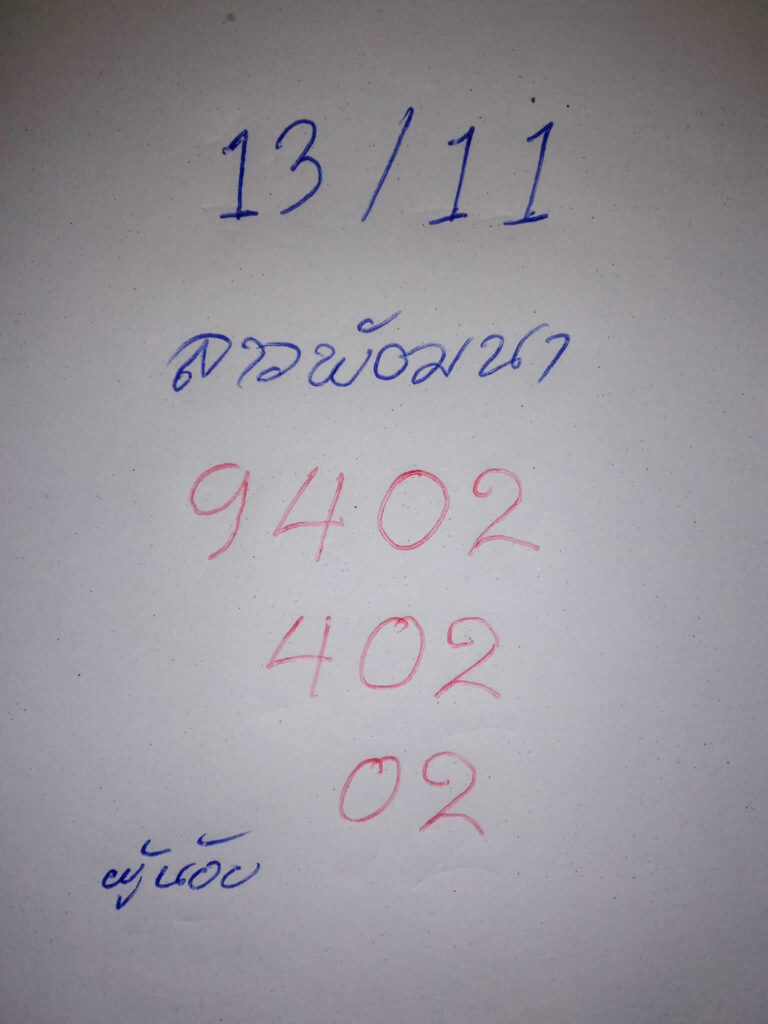 13/11
ลาวพัฒนา
9402
402
02
ผู้น้อย